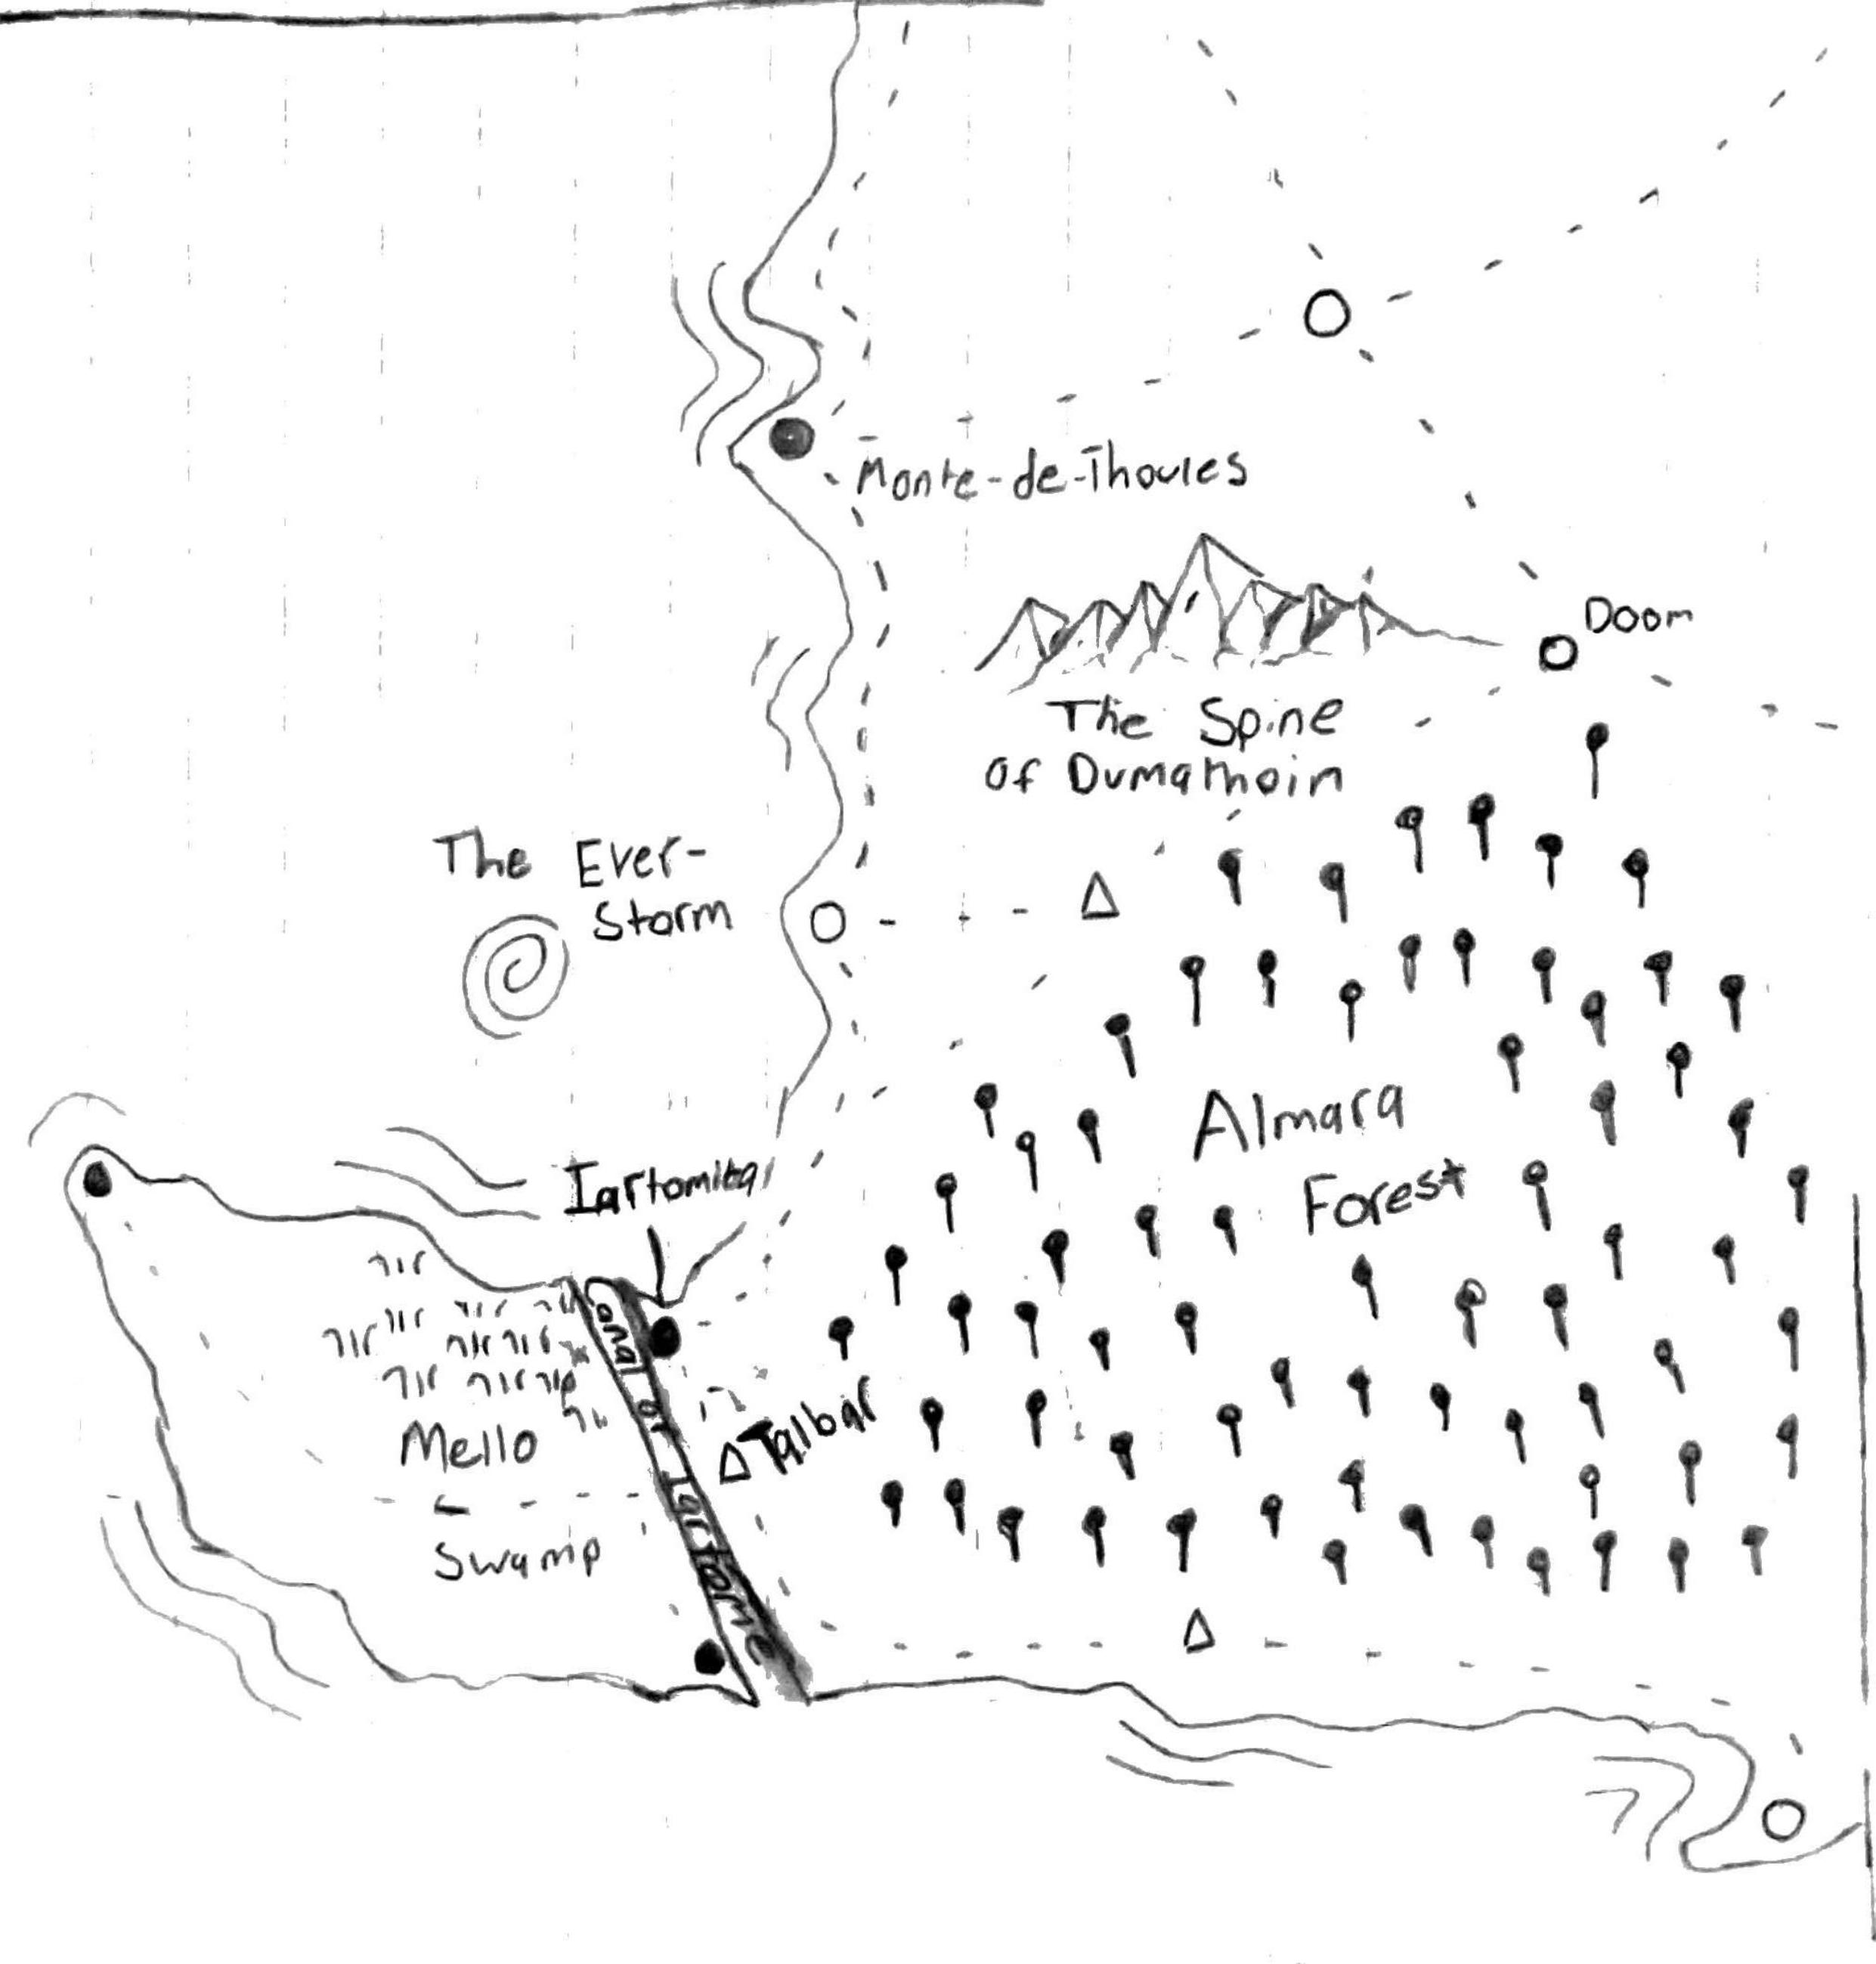 Monte-de-Thoules
Doom
The Spine
of Dumathoin
The Ever-
Storm
Almara
Forest
Iartomital
Canal of Iartome
Talbar
Mello
Swamp